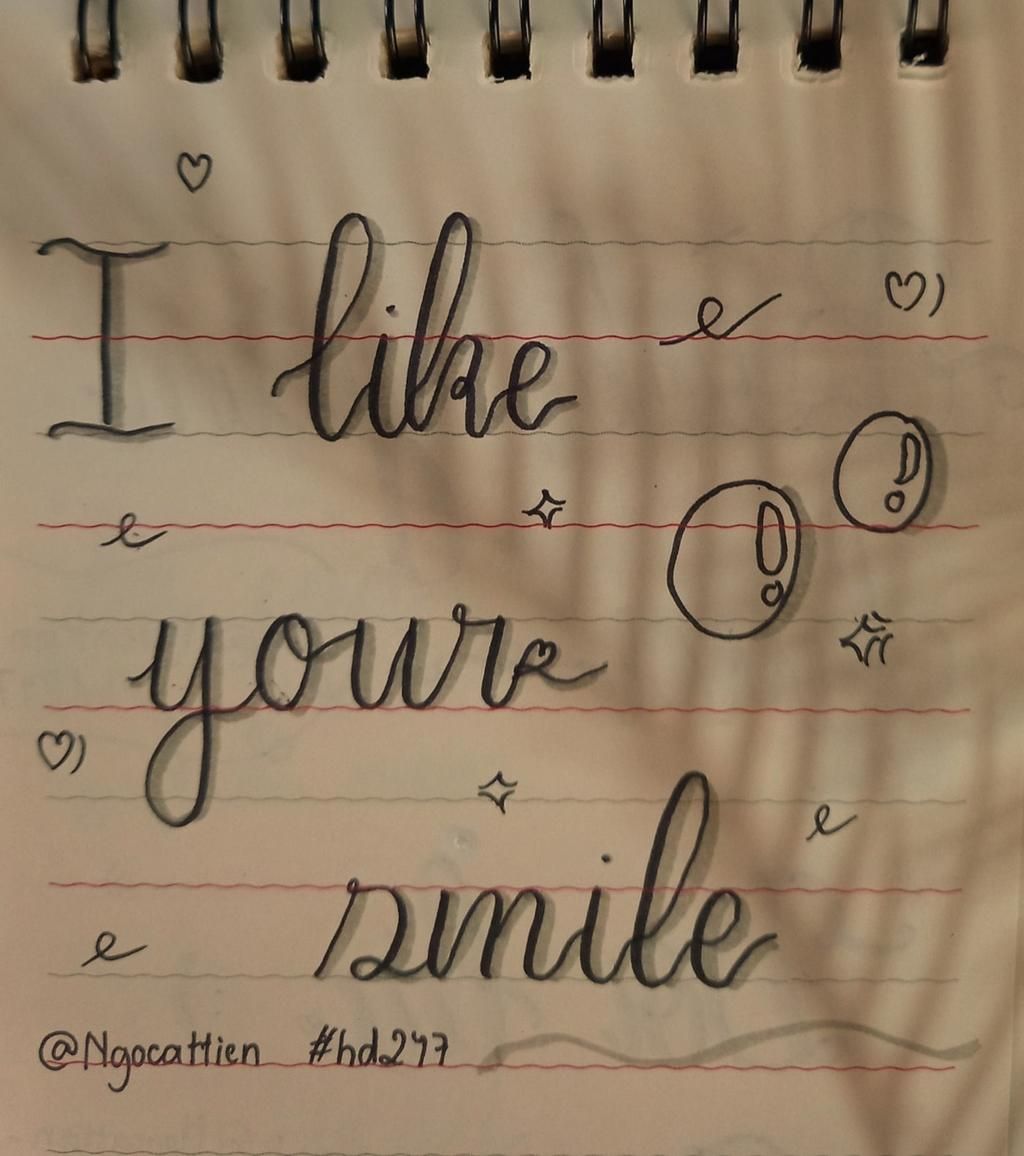 I like
your
smile
@Ngocattien #hd247